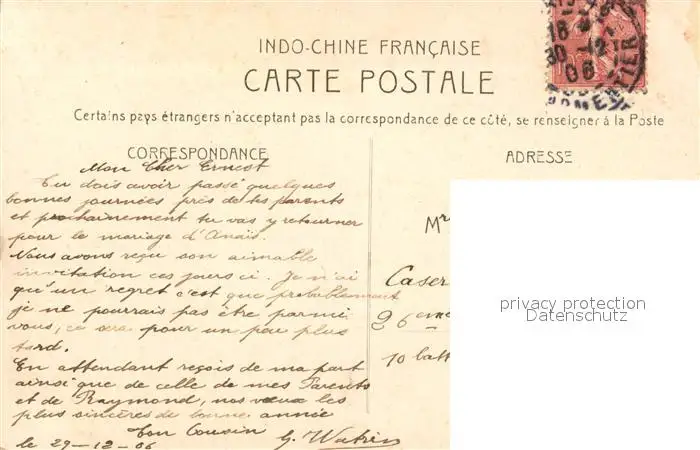 INDO-CHINE FRANÇAISE
CARTE POSTALE
Certains pays étrangers n'acceptant pas la correspondance de ce côté, se renseigner à la Poste
CORRESPONDANCE
Mon Cher Ernest
Tu dois avoir passé quelques
bonnes journées près de tes parents
et prochainement tu vas y retourner
pour le mariage d'Anaïs.
Nous avons reçu son aimable
invitation ces jours ci. Je n'ai
qu'un regret c'est que probablement
je ne pourrais pas être parmi
vous, ce sera pour un peu plus
tard.
En attendant reçois de ma part
ainsi que de celle de mes Parents
et de Raymond, nos vœux les
plus sincères de bonne année
Ton Cousin
le 29-12-06
ADRESSE
Mr
Caser
26eme
10 bat
privacy protection
Datenschutz
30 12
06